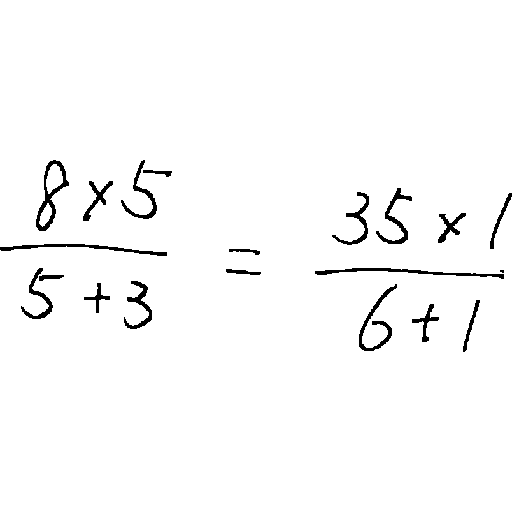 8×5 / 5+3 = 35×1 / 6+1